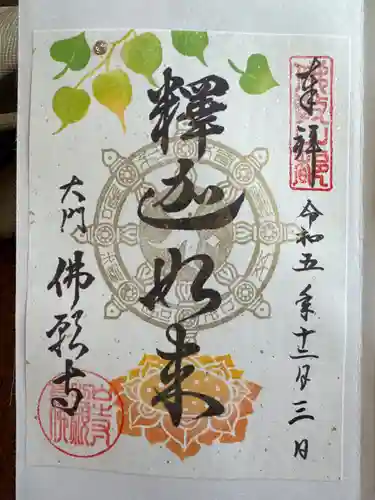 奉拝
令和五年十二月三日
釋迦如来
大門
佛願寺